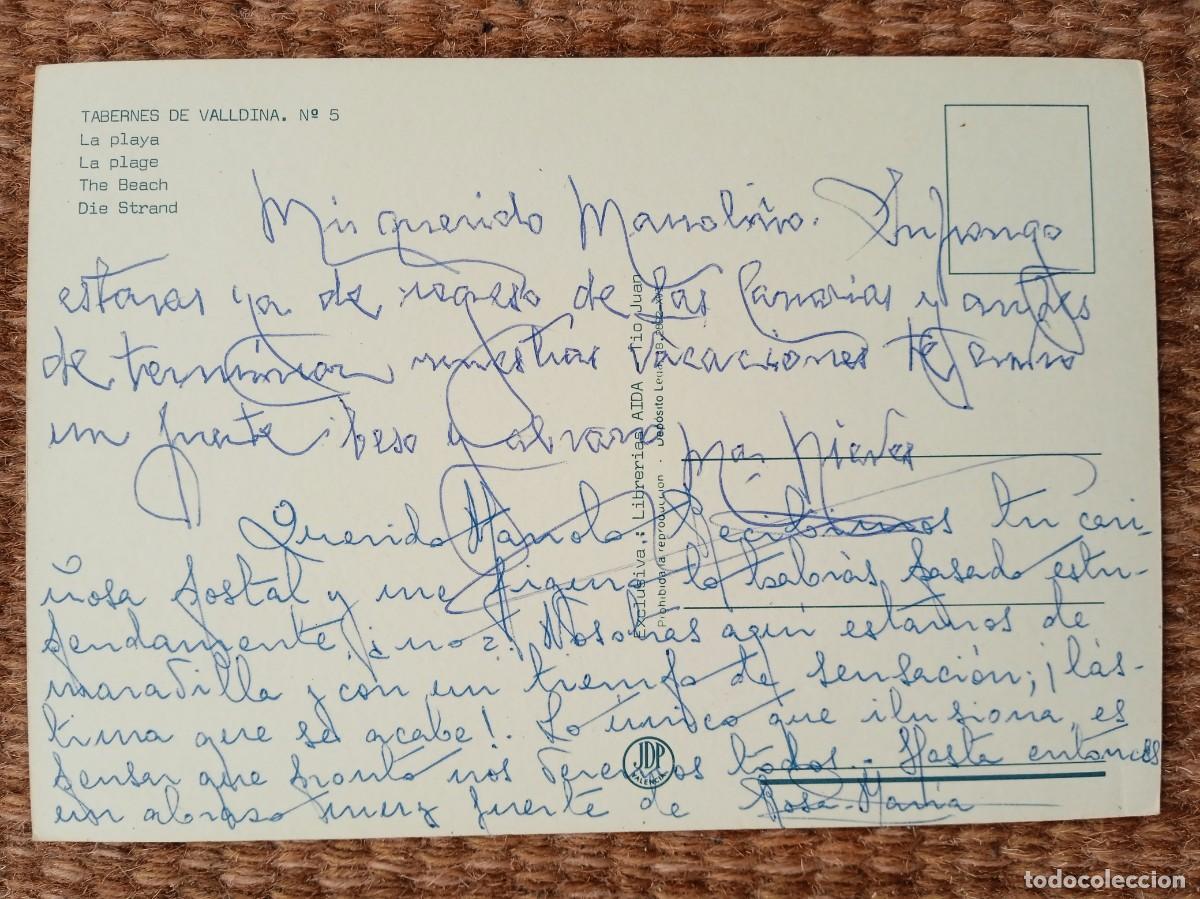 TABERNES DE VALLDINA. Nº 5
La playa
La plage
The Beach
Die Strand
Mi querido Manoliño. Supongo
estaras ya de regreso de las Canarias y antes
de terminar nuestras vacaciones te envio
un fuerte beso y abrazo Mª Nieves
Querido Manolo: Recibimos tu cari-
ñosa postal y me figuro lo habrás pasado estu-
pendamente ¿no?. Nosotras aquí estamos de
maravilla y con un tiempo de sensación; ¡lás-
tima que se acabe!. Lo único que ilusiona, es
pensar que pronto nos veremos todos.- Hasta entonces
un abrazo muy fuerte de Rosa-María
Exclusiva.: Librerías AIDA Tio Juan
Prohibida la reproducción - Depósito Legal
JDP
VALENCIA
todocoleccion